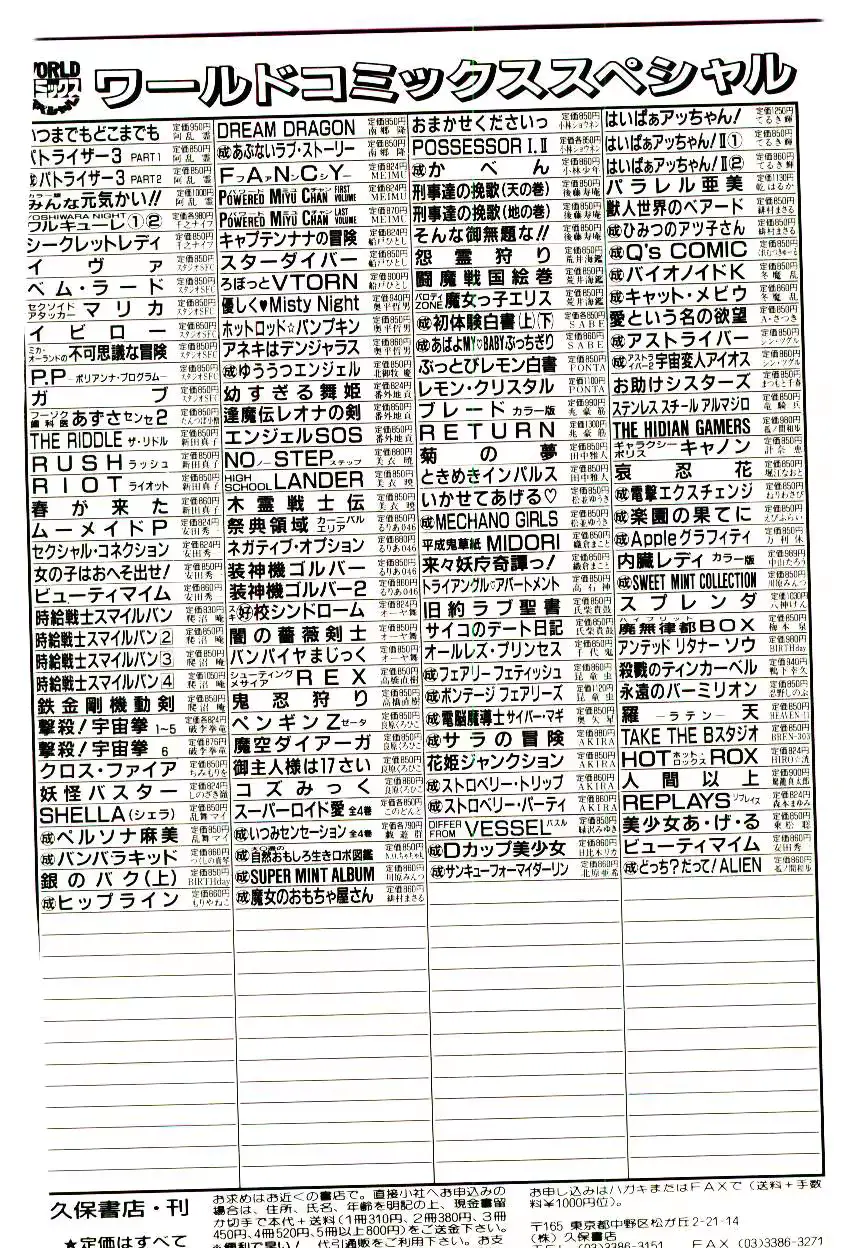 WORLD
ワールドコミックススペシャル
いつまでもどこまでも 定価950円 阿乱霊
バトライザー3 PART1 定価850円 阿乱霊
成バトライザー3 PART2 定価850円 阿乱霊
みんな元気かい!! 定価1000円 阿乱霊
YOSHIWARA NIGHT
ワルキューレ①② 定価各980円
シークレットレディ 定価850円
イヴァ 定価850円 スタジオSFC
ベム・ラード 定価850円 スタジオSFC
セクソイドアタッカー マリカ 定価850円 スタジオSFC
イビロー 定価850円 スタジオSFC
ミカ・オーランドの不可思議な冒険 定価850円 スタジオSFC
P.P ーポリアンナ・プログラムー 定価850円 スタジオSFC
ガブ 定価824円
フーゾク歯科医 あずさセンセ2 定価850円
THE RIDDLE ザ・リドル 定価850円 新田真子
RUSH ラッシュ 定価850円 新田真子
RIOT ライオット 定価850円 新田真子
春が来た 定価860円 新田真子
ムーメイドP 定価824円 安田秀一
セクシャル・コネクション 定価824円 安田秀一
女の子はおへそ出せ! 定価850円 安田秀一
ビューティマイム 定価860円 安田秀一
時給戦士スマイルバン 定価830円
時給戦士スマイルバン2 定価850円
時給戦士スマイルバン3 定価850円
時給戦士スマイルバン4 定価1050円
鉄金剛機動剣 定価850円
撃殺!宇宙拳 1~5 定価各824円 破李拳竜
撃殺!宇宙拳 6 定価876円 破李拳竜
クロス・ファイア 定価850円 ちみもりを
妖怪バスター 定価824円 しのざき嶺
SHELLA(シェラ) 定価850円 乱舞マイ
成ペルソナ麻美 定価850円 乱舞マイ
成バンバラキッド 定価860円 つくしの真琴
銀のバク(上) 定価850円 BIRTHday
成ヒップライン 定価860円 もりやねこ
DREAM DRAGON 定価850円 南郷隆
成あぶないラブ・ストーリー 定価850円 南郷隆
FァAァNンCシY 定価824円 MEIMU
POWERED MIYU CHAN FIRST VOLUME 定価824円 MEIMU
POWERED MIYU CHAN LAST VOLUME 定価870円 MEIMU
キャプテンナナの冒険 定価824円 船戸ひとし
スターダイバー 定価850円 船戸ひとし
ろぼっとVTORN 定価800円 船戸ひとし
優しく♥Misty Night 定価840円 奥平哲男
ホットロッド☆パンプキン 定価850円 奥平哲男
アネキはデンジャラス 定価860円 奥平哲男
成ゆううつエンジェル 定価850円
幼すぎる舞姫 定価824円 番外地貢
逢魔伝レオナの剣 定価850円 番外地貢
エンジェルSOS 定価850円 番外地貢
NOノーSTEPステップ 定価880円 美衣暁
HIGH SCHOOL LANDER 定価850円 美衣暁
木霊戦士伝 定価850円 美衣暁
祭典領域 カーニバルエリア 定価850円 るりあ046
ネガティブ・オプション 定価880円 るりあ046
装神機ゴルバー 定価850円 るりあ046
装神機ゴルバー2 定価860円 るりあ046
スキ好校シンドローム 定価824円 オーヤ舞
闇の薔薇剣士 定価850円 オーヤ舞
バンパイヤまじっく 定価850円 オーヤ舞
シューティングメサイア REX 定価850円 高橋直樹
鬼忍狩り 定価850円 高橋直樹
ペンギンZゼータ 定価850円 良原くろひこ
魔空ダイアーガ 定価850円 良原くろひこ
御主人様は17さい 定価850円 良原くろひこ
コズみっく 定価860円 良原くろひこ
スーパーロイド愛 全4巻 定価各850円 このどんと
成いつみセンセーション 全4巻 定価各790円
成自然おもしろ生きロボ図鑑 定価850円
成SUPER MINT ALBUM 定価860円 川原みんつ
成魔女のおもちゃ屋さん 定価860円 緋村まさる
おまかせくださいっ 定価850円 小林ショウネン
POSSESSOR I.II 定価各850円 小林ショウネン
成かべん 定価860円 小林少年
刑事達の挽歌(天の巻) 定価850円 後藤寿庵
刑事達の挽歌(地の巻) 定価850円 後藤寿庵
そんな御無題な!! 定価850円 後藤寿庵
怨霊狩り 定価850円 荒井海鑑
闘魔戦国絵巻 定価850円 荒井海鑑
パロディZONE魔女っ子エリス 定価850円 荒井海鑑
成初体験白書(上)(下) 定価各850円 SABE
成あばよMY♡BABYぶっちぎり 定価860円 SABE
ぶっとびレモン白書 定価850円 PONTA
レモン・クリスタル 定価1100円 PONTA
ブレード カラー版 定価990円 兆豪筋
RETURN 定価1300円 兆豪筋
菊の夢 定価850円 田中雅人
ときめきインパルス 定価850円 田中雅人
いかせてあげる♡ 定価850円 松並ゆうき
成MECHANO GIRLS 定価850円 松並ゆうき
平成鬼草紙MIDORI 定価850円 織倉まこと
来々妖斥奇譚っ! 定価850円 織倉まこと
トライアングル♡アパートメント 定価850円 高石神
旧約ラブ聖書 定価850円 氏柴貴競
サイコのデート日記 定価850円 氏柴貴競
オールレズ・プリンセス 定価850円 千代鬼
成フェアリー フェティッシュ 定価860円 昆童虫
成ボンデージ フェアリーズ 定価1120円 昆童虫
成電脳魔導士サイバー・マギ 定価850円 奥矢星
成サラの冒険 定価880円 AKIRA
花姫ジャンクション 定価850円 AKIRA
成ストロベリー・トリップ 定価860円 AKIRA
成ストロベリー・パーティ 定価860円 AKIRA
DIFFER FROM VESSELバスル 定価850円 城沢みゆき
成Dカップ美少女 定価860円 日比木リカ
成サンキューフォーマイダーリン 定価860円 北原亜希
はいぱぁアッちゃん! 定価1250円 てるき輝
はいぱぁアッちゃん!II① 定価850円 てるき輝
はいぱぁアッちゃん!II② 定価860円 てるき輝
パラレル亜美 定価1130円 乾はるか
獣人世界のベアード 定価850円 緋村まさる
成ひみつのアツ子さん 定価850円 緋村まさる
成Q's COMIC 定価850円
成バイオノイドK 定価850円 冬魔乱
成キャット・メビウ 定価860円 冬魔乱
愛という名の欲望 定価850円 A・さつき
成アストライバー 定価850円 シン・ツグル
成アストライバー2宇宙変人アイオス 定価860円 シン・ツグル
お助けシスターズ 定価850円 まつもと千春
ステンレス スチール アルマジロ 定価850円 竜騎兵
THE HIDIAN GAMERS 定価980円
ギャラクシーポリス キャノン 定価850円 計奈恵
哀忍花 定価850円 堀江なおと
成電撃エクスチェンジ 定価850円 ねりわさび
成楽園の果てに 定価850円 えびふらい
成Appleグラフィティ 定価850円 万利休
内臓レディ カラー版 定価989円 中山たろう
成SWEET MINT COLLECTION 定価850円 川原みんつ
スプレンダ 定価1030円 八神けん
ハイブリット
魔無律都BOX 定価850円 梅本泉
アンデッド リタナー ソウ 定価980円 BIRTHday
殺戮のティンカーベル 定価940円 鴨下幸久
永遠のバーミリオン 定価850円 忍野しのぶ
羅ーラテンー天 定価850円 HEAVEN-11
TAKE THE Bスタジオ 定価850円 BREN-303
HOTホット・ROXロックス 定価824円
人間以上 定価900円
REPLAYSリプレイズ 定価824円 森本まゆみ
美少女あ・げ・る 定価850円 東松聡
ビューティマイム 定価850円 安田秀一
成どっち?だって!ALIEN 定価860円 藍ノ間和歩
久保書店・刊
★定価はすべて
お求めはお近くの書店で。直接小社へお申込みの
場合は、住所、氏名、年齢を明記の上、現金書留
か切手で本代+送料(1冊310円、2冊380円、3冊
450円、4冊520円、5冊以上800円)をご送金下さい。
※便利で早い! 代引通販をご利用下さい。お支
お申し込みはハガキまたはFAXで(送料+手数
料¥1000円位)。
〒165 東京都中野区松が丘2-21-14
(株)久保書店
TEL (03)3386-3151 FAX (03)3386-3271